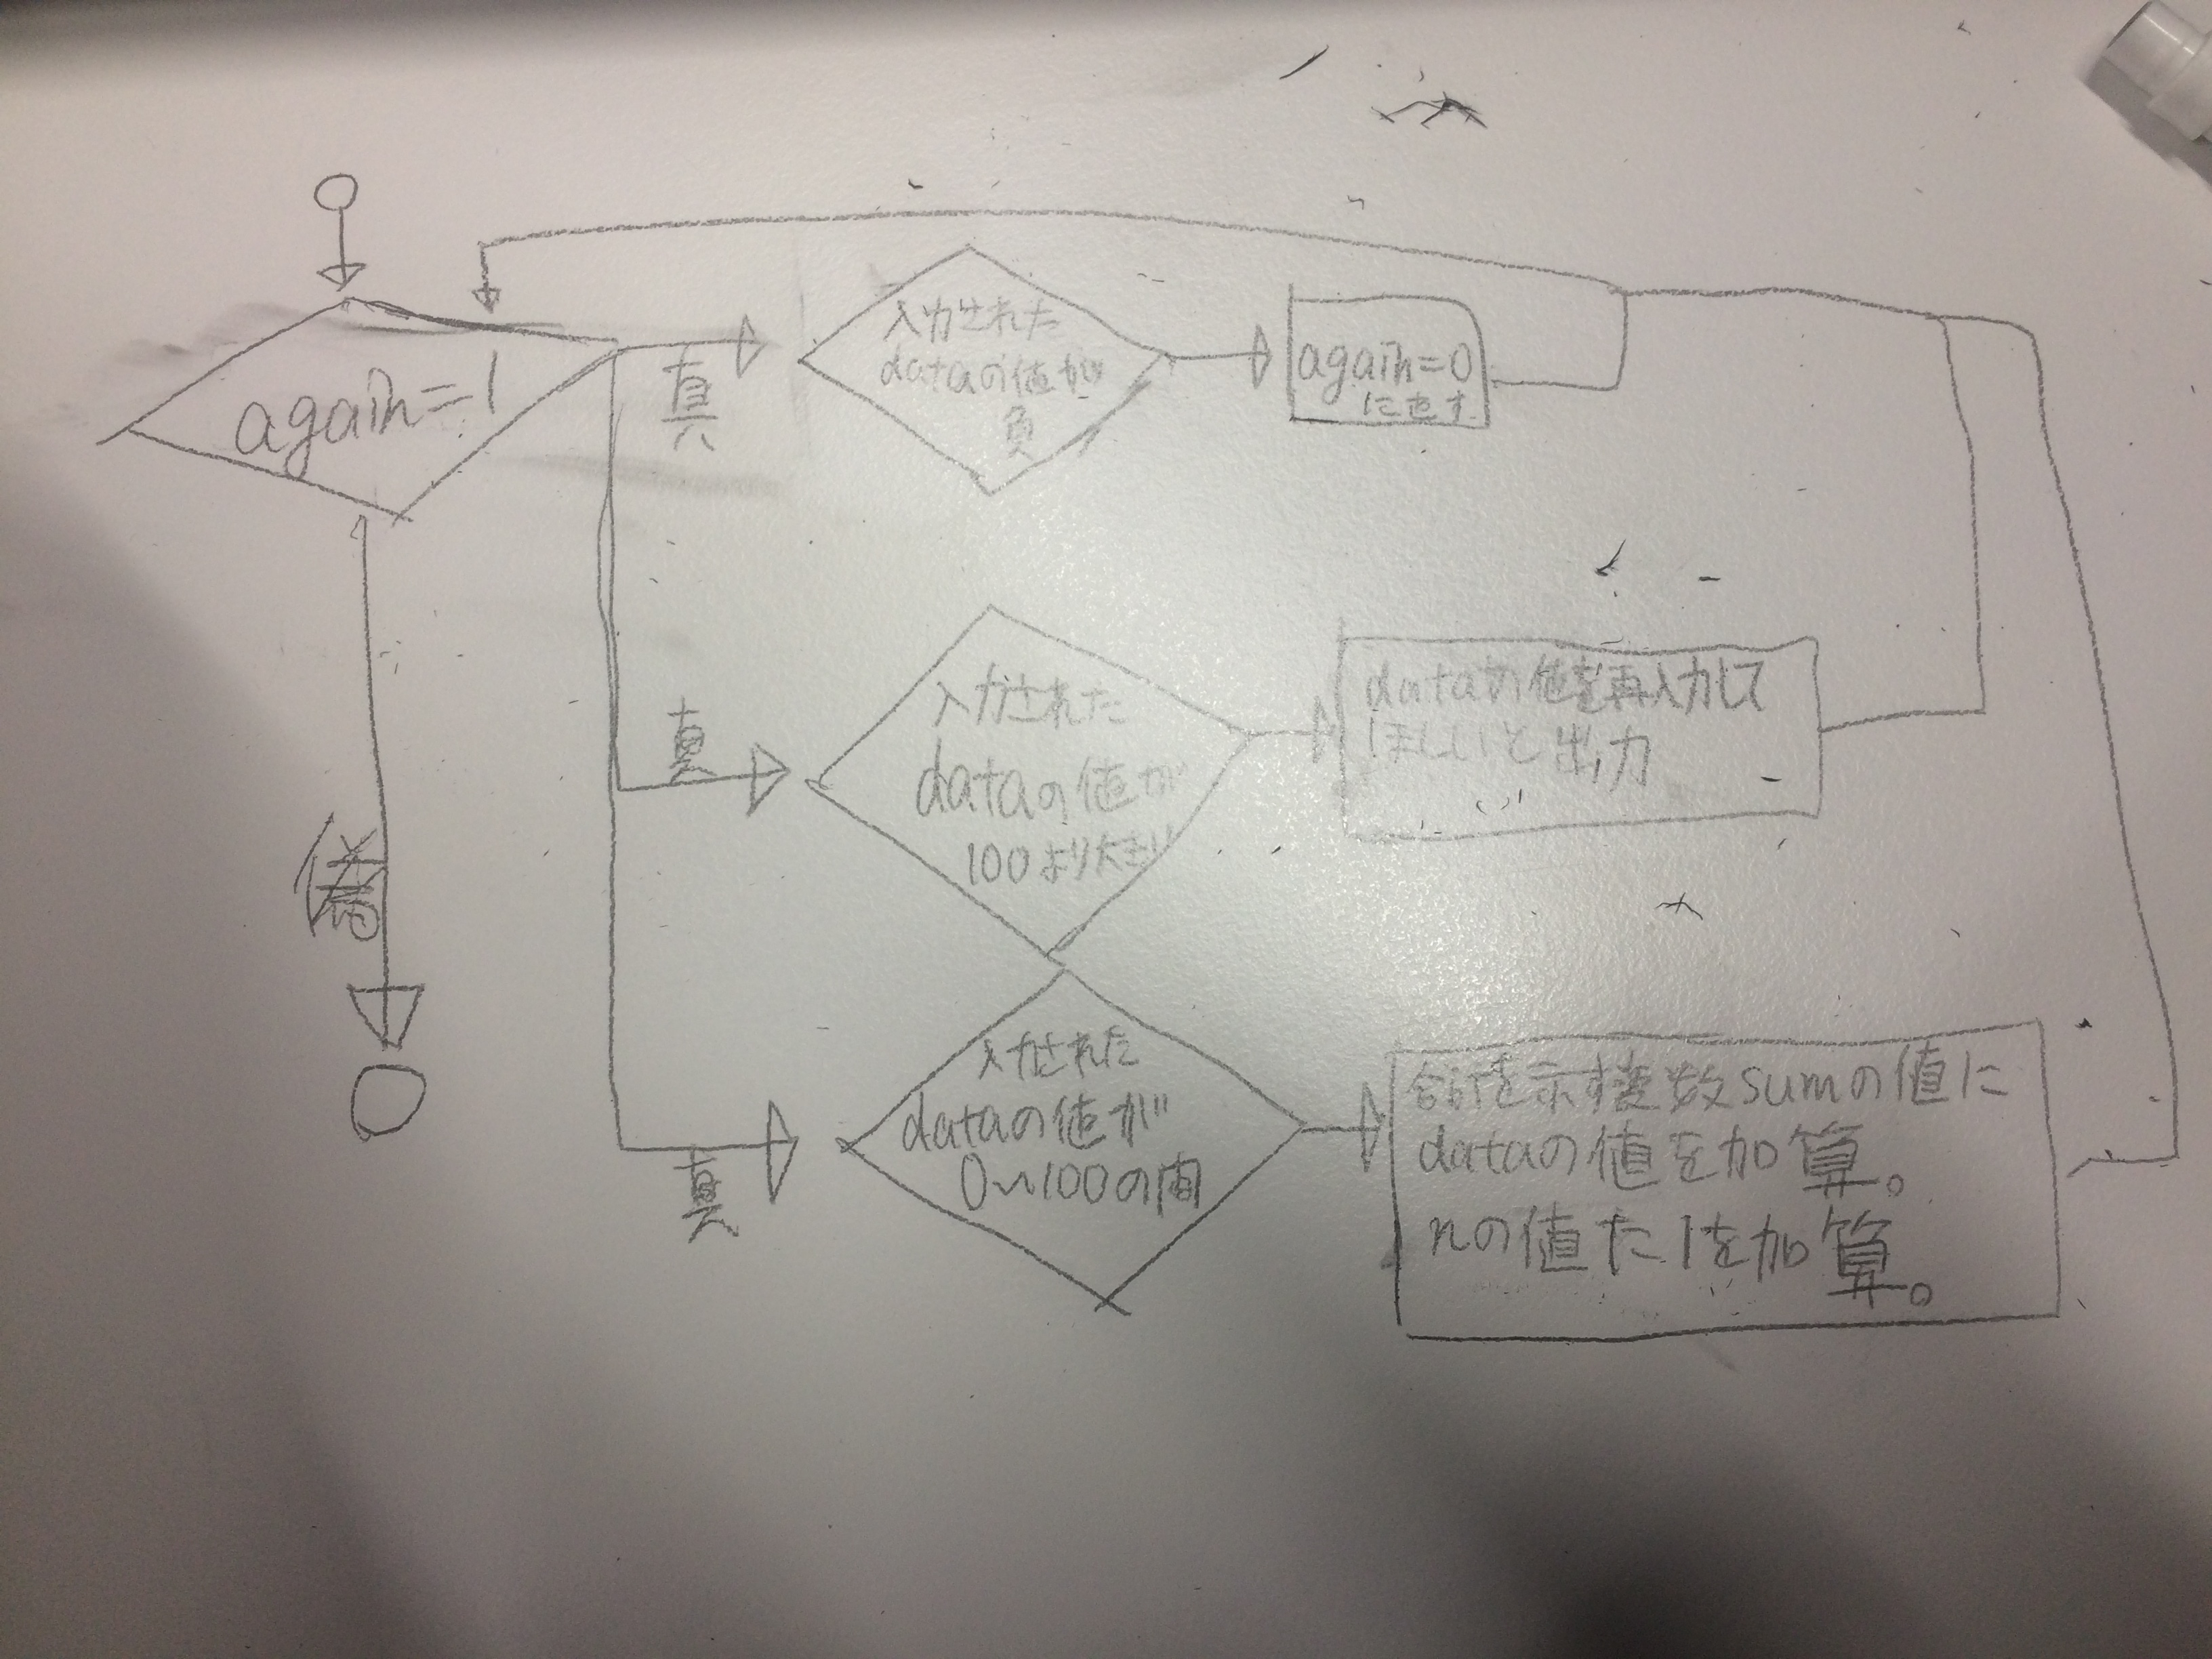 again=1
真
入力された
dataの値が
負
again=0
に直す
真
入力された
dataの値が
100より大きい
dataの値を再入力して
ほしいと出力
偽
真
入力された
dataの値が
0~100の間
合計を示す変数sumの値に
dataの値を加算。
nの値た1を加算。